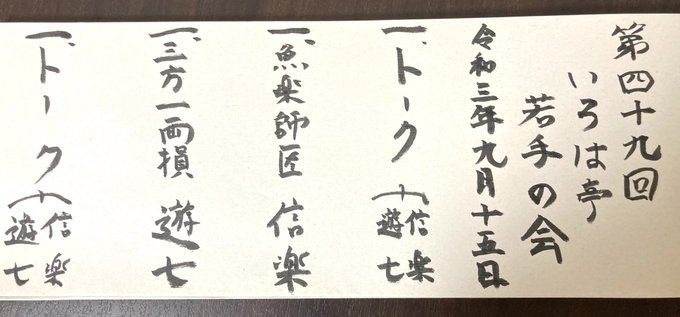 第四十九回
いろは亭
若手の会
令和三年九月十五日
一、トーク 信楽 遊七
一、魚楽師匠 信楽
一、三方一両損 遊七
一、トーク 信楽 遊七